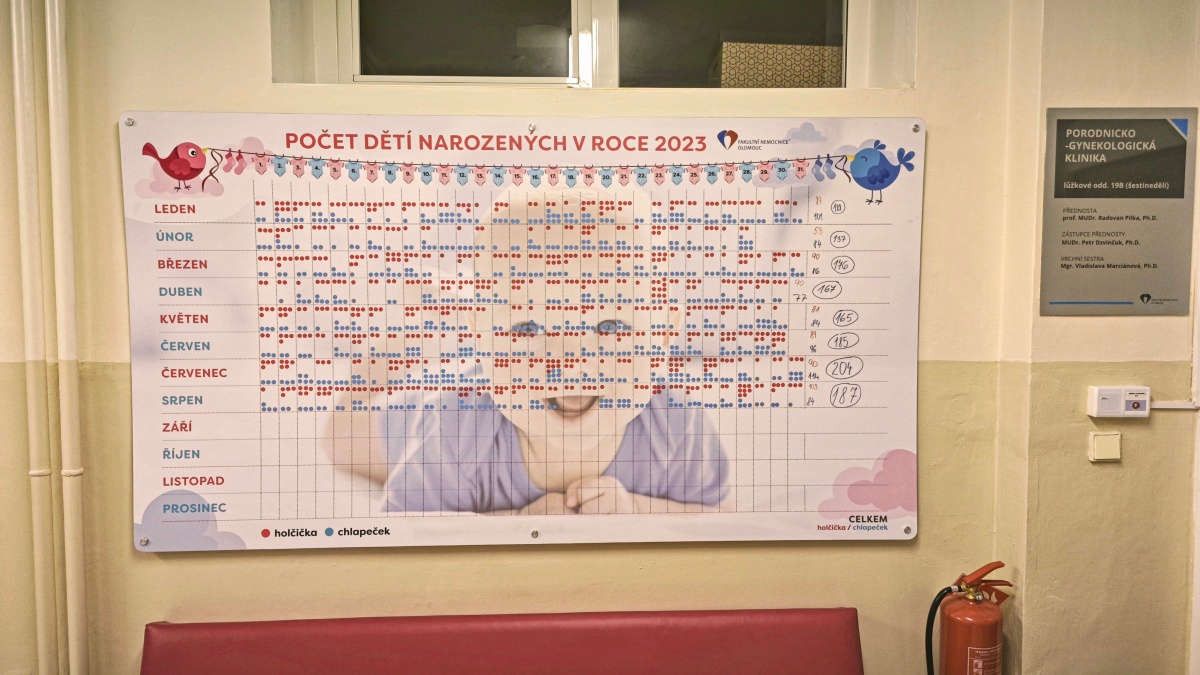 POČET DĚTÍ NAROZENÝCH V ROCE 2023
FAKULTNÍ NEMOCNICE
OLOMOUC
1. 2. 3. 4. 5. 6. 7. 8. 9. 10. 11. 12. 13. 14. 15. 16. 17. 18. 19. 20. 21. 22. 23. 24. 25. 26. 27. 28. 29. 30. 31.
LEDEN
ÚNOR
BŘEZEN 176
DUBEN 77 167
KVĚTEN 84 165
ČERVEN 96
ČERVENEC 204
SRPEN 84 187
ZÁŘÍ
ŘÍJEN
LISTOPAD
PROSINEC
holčička chlapeček
CELKEM
holčička / chlapeček
PORODNICKO
-GYNEKOLOGICKÁ
KLINIKA
lůžkové odd. 19B (šestinedělí)
PŘEDNOSTA
prof. MUDr. Radovan Pilka, Ph.D.
ZÁSTUPCE PŘEDNOSTY
MUDr. Petr Dzvinčuk, Ph.D.
VRCHNÍ SESTRA
Mgr. Vladislava Marciánová, Ph.D.